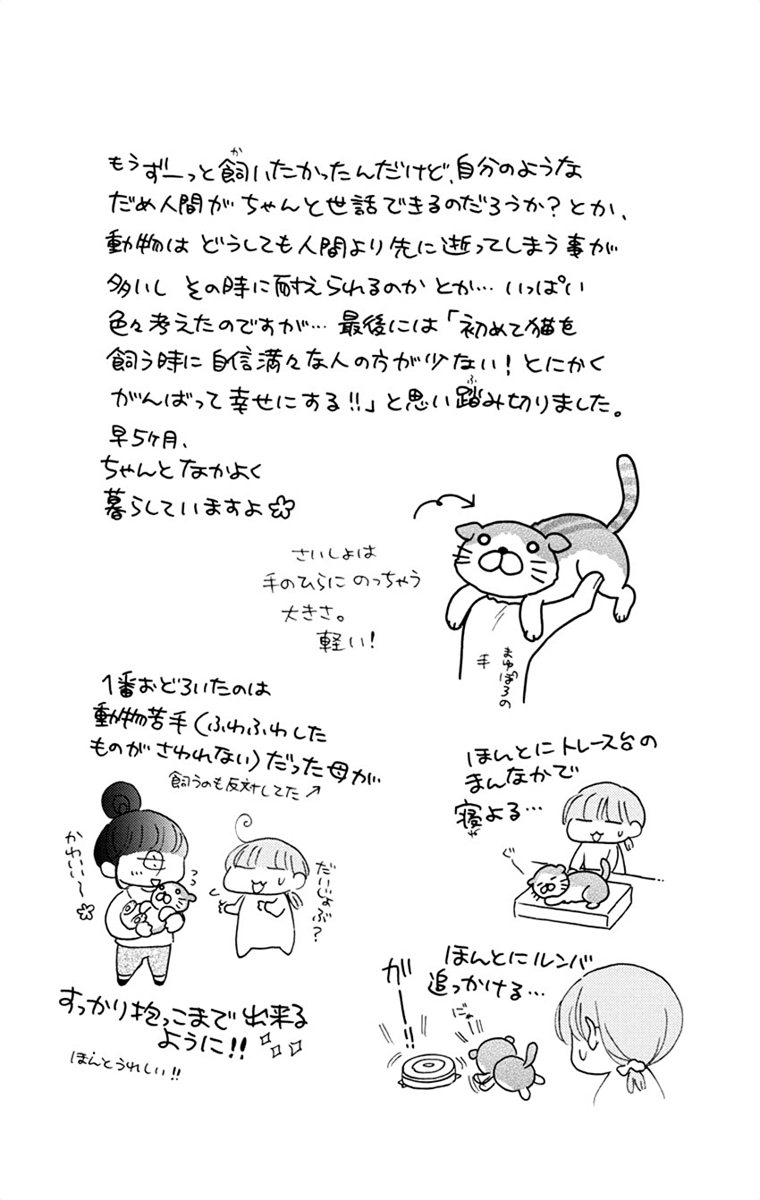 もうずーっと飼いたかったんだけど、自分のような
か
だめ人間がちゃんと世話できるのだろうか?とか、
動物はどうしても人間より先に逝ってしまう事が
多いし その時に耐えられるのかとか… いっぱい
色々考えたのですが… 最後には「初めて猫を
飼う時に自信満々な人の方が少ない!とにかく
がんばって幸せにする!!」と思い踏み切りました。
ふ
早5ヶ月、
ちゃんとなかよく
暮らしていますよ
さいしょは
手のひらにのっちゃう
大きさ。
軽い!
まゆぽろの
手
1番おどろいたのは
動物苦手(ふわふわした
ものがさわれない)だった母が
飼うのも反対してた
かわいい~
だいじょぶ?
すっかり抱っこまで出来る
ように!!
ほんとうれしい!!
ほんとにトレース台の
まんなかで
寝よる…
ね
ぐぅ
ほんとにルンバ
追っかける…
ガーー!!
にゃー